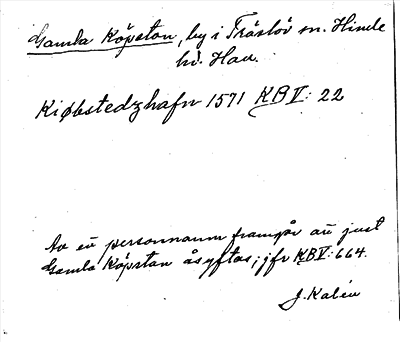 Gamla Köpstan, by i Träslöv sn. Himle
hd. Hall.
Kiøbstedzhafn 1571 KBV: 22
Av en personnamn framgår att just
Gamla Köpstan åsyftas; jfr KBV: 664.
J. Kalén